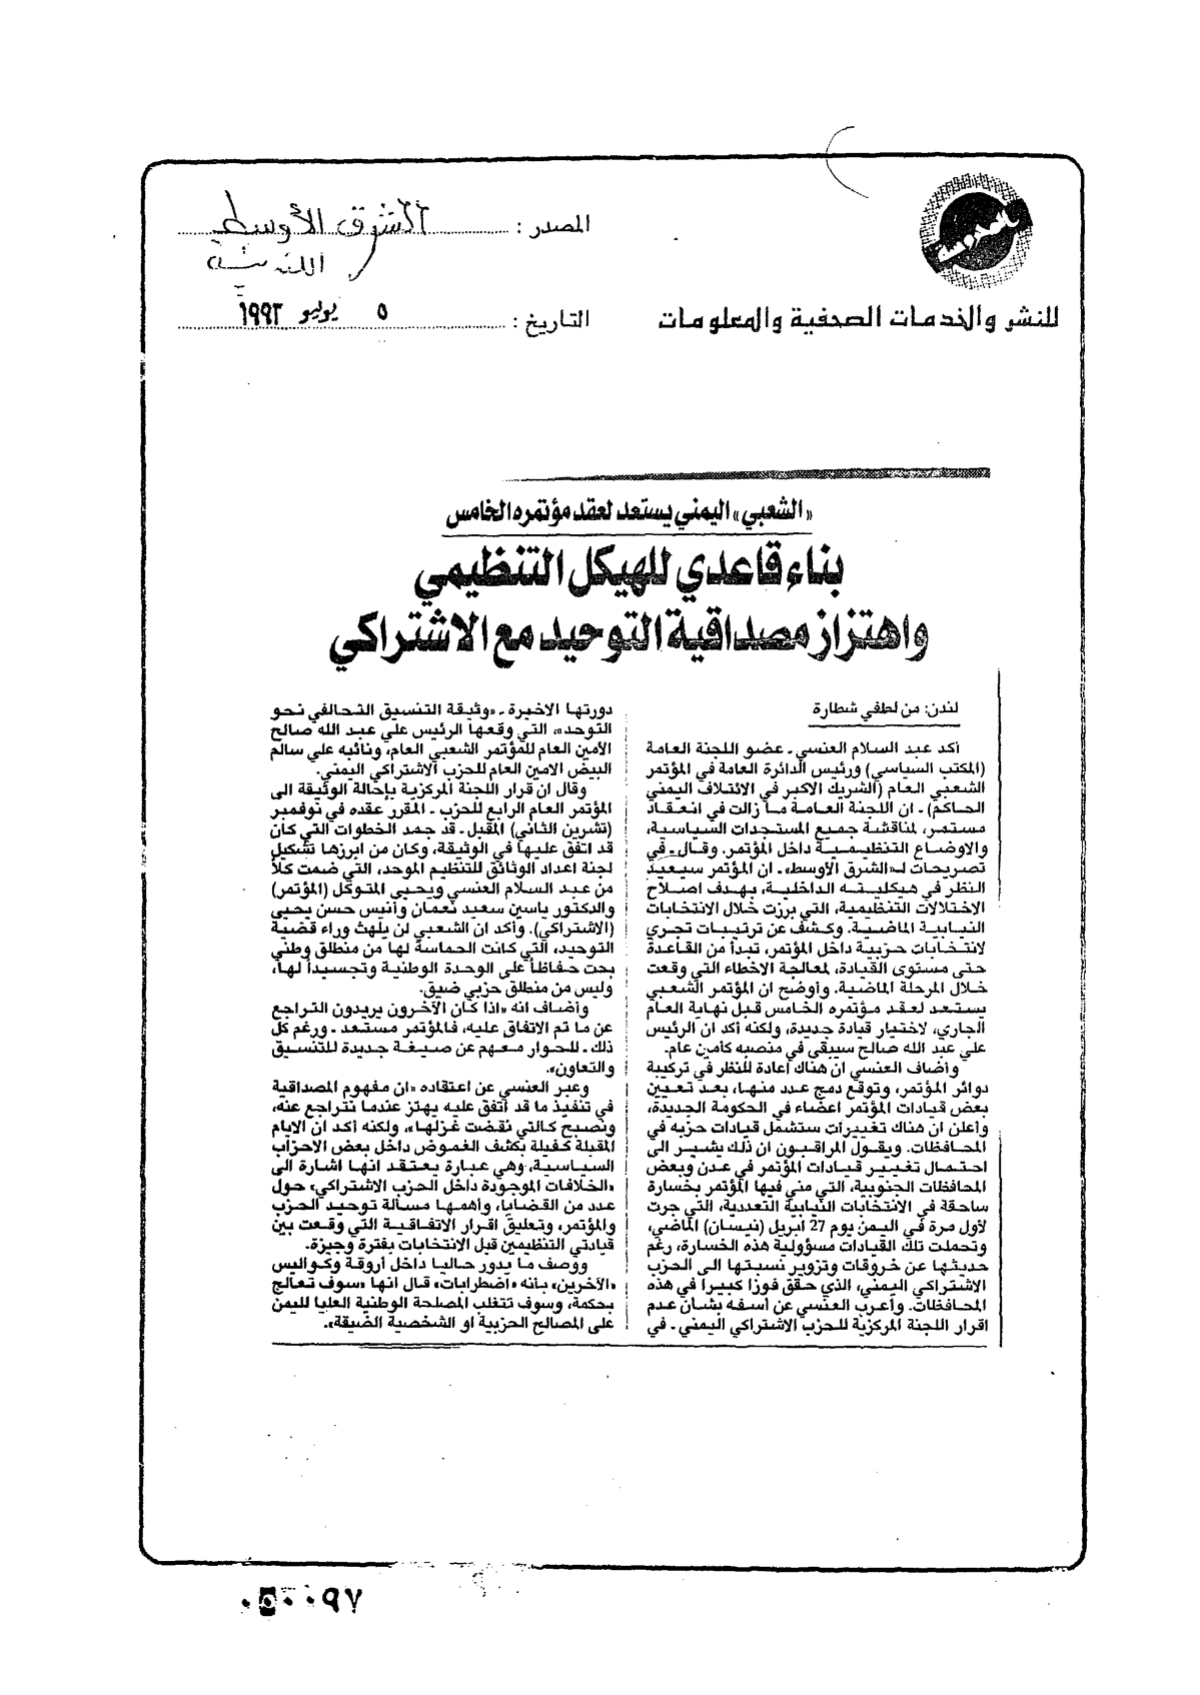 المصدر : الشرق الأوسط
اللندنية
التاريخ : ٥ يوليو ١٩٩٣
للنشر والخدمات الصحفية والمعلومات
«الشعبي» اليمني يستعد لعقد مؤتمره الخامس
بناء قاعدي للهيكل التنظيمي
واهتزاز مصداقية التوحيد مع الاشتراكي
لندن: من لطفي شطارة
أكد عبد السلام العنسي ـ عضو اللجنة العامة
(المكتب السياسي) ورئيس الدائرة العامة في المؤتمر
الشعبي العام (الشريك الاكبر في الائتلاف اليمني
الحاكم) ـ ان اللجنة العامة ما زالت في انعقاد
مستمر، لمناقشة جميع المستجدات السياسية،
والاوضاع التنظيمية داخل المؤتمر. وقال ـ في
تصريحات لـ«الشرق الأوسط» ـ ان المؤتمر سيعيد
النظر في هيكليته الداخلية، بهدف اصلاح
الاختلالات التنظيمية، التي برزت خلال الانتخابات
النيابية الماضية. وكشف عن ترتيبات تجري
لانتخابات حزبية داخل المؤتمر، تبدأ من القاعدة
حتى مستوى القيادة، لمعالجة الاخطاء التي وقعت
خلال المرحلة الماضية. وأوضح ان المؤتمر الشعبي
يستعد لعقد مؤتمره الخامس قبل نهاية العام
الجاري، لاختيار قيادة جديدة، ولكنه أكد ان الرئيس
علي عبد الله صالح سيبقى في منصبه كأمين عام.
وأضاف العنسي ان هناك اعادة للنظر في تركيبة
دوائر المؤتمر، وتوقع دمج عدد منها، بعد تعيين
بعض قيادات المؤتمر اعضاء في الحكومة الجديدة،
وأعلن ان هناك تغييرات ستشمل قيادات حزبه في
المحافظات. ويقول المراقبون ان ذلك يشير الى
احتمال تغيير قيادات المؤتمر في عدن وبعض
المحافظات الجنوبية، التي مني فيها المؤتمر بخسارة
ساحقة في الانتخابات النيابية التعددية، التي جرت
لأول مرة في اليمن يوم 27 ابريل (نيسان) الماضي،
وتحملت تلك القيادات مسؤولية هذه الخسارة، رغم
حديثها عن خروقات وتزوير نسبتها الى الحزب
الاشتراكي اليمني، الذي حقق فوزا كبيرا في هذه
المحافظات. وأعرب العنسي عن أسفه بشان عدم
اقرار اللجنة المركزية للحزب الاشتراكي اليمني ـ في
دورتها الاخيرة ـ «وثيقة التنسيق التحالفي نحو
التوحد»، التي وقعها الرئيس علي عبد الله صالح
الأمين العام للمؤتمر الشعبي العام، ونائبه علي سالم
البيض الامين العام للحزب الاشتراكي اليمني.
وقال ان قرار اللجنة المركزية بإحالة الوثيقة الى
المؤتمر العام الرابع للحزب ـ المقرر عقده في نوفمبر
(تشرين الثاني) المقبل ـ قد جمد الخطوات التي كان
قد اتفق عليها في الوثيقة، وكان من ابرزها تشكيل
لجنة اعداد الوثائق للتنظيم الموحد، التي ضمت كلاً
من عبد السلام العنسي ويحيى المتوكل (المؤتمر)
والدكتور ياسين سعيد نعمان وأنيس حسن يحيى
(الاشتراكي). وأكد ان الشعبي لن يلهث وراء قضية
التوحيد، التي كانت الحماسة لها من منطلق وطني
بحت حفاظاً على الوحدة الوطنية وتجسيداً لها،
وليس من منطلق حزبي ضيق.
وأضاف انه «اذا كان الآخرون يريدون التراجع
عن ما تم الاتفاق عليه، فالمؤتمر مستعد ـ ورغم كل
ذلك ـ للحوار معهم عن صيغة جديدة للتنسيق
والتعاون».
وعبر العنسي عن اعتقاده «ان مفهوم المصداقية
في تنفيذ ما قد اتفق عليه يهتز عندما نتراجع عنه،
ونصبح كالتي نقضت غزلها»، ولكنه أكد ان الايام
المقبلة كفيلة بكشف الغموض داخل بعض الاحزاب
السياسية، وهي عبارة يعتقد انها اشارة الى
«الخلافات الموجودة داخل الحزب الاشتراكي» حول
عدد من القضايا، وأهمها مسألة توحيد الحزب
والمؤتمر، وتعليق اقرار الاتفاقية التي وقعت بين
قيادتي التنظيمين قبل الانتخابات بفترة وجيزة.
ووصف ما يدور حاليا داخل أروقة وكواليس
«الآخرين» بانه «اضطرابات» قال انها «سوف تعالج
بحكمة، وسوف تتغلب المصلحة الوطنية العليا لليمن
على المصالح الحزبية او الشخصية الضيقة».